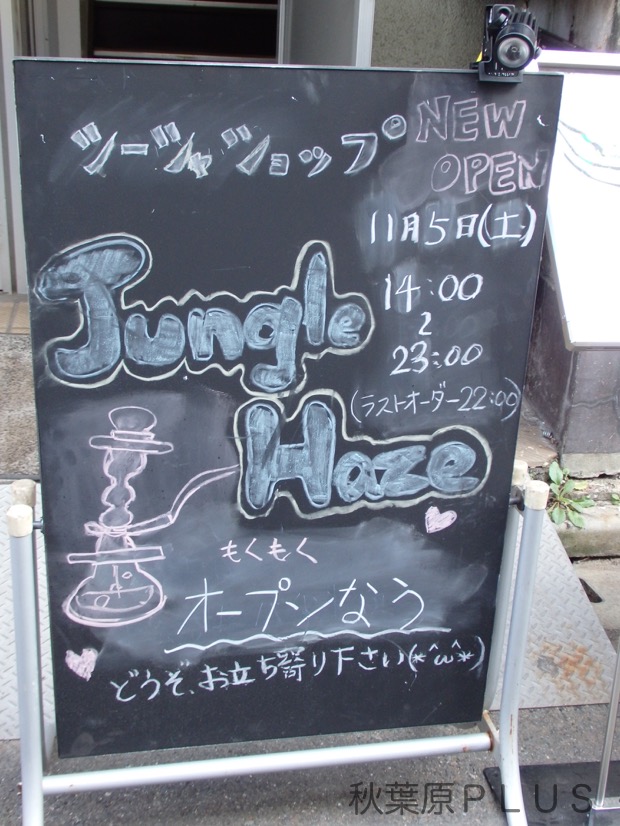 シーシャショップ
NEW
OPEN
11月5日(土)
14:00
〜
23:00
(ラストオーダー22:00)
Jungle
Haze
もくもく
オープンなう
どうぞ、お立ち寄り下さい(*^ω^*)
秋葉原PLUS